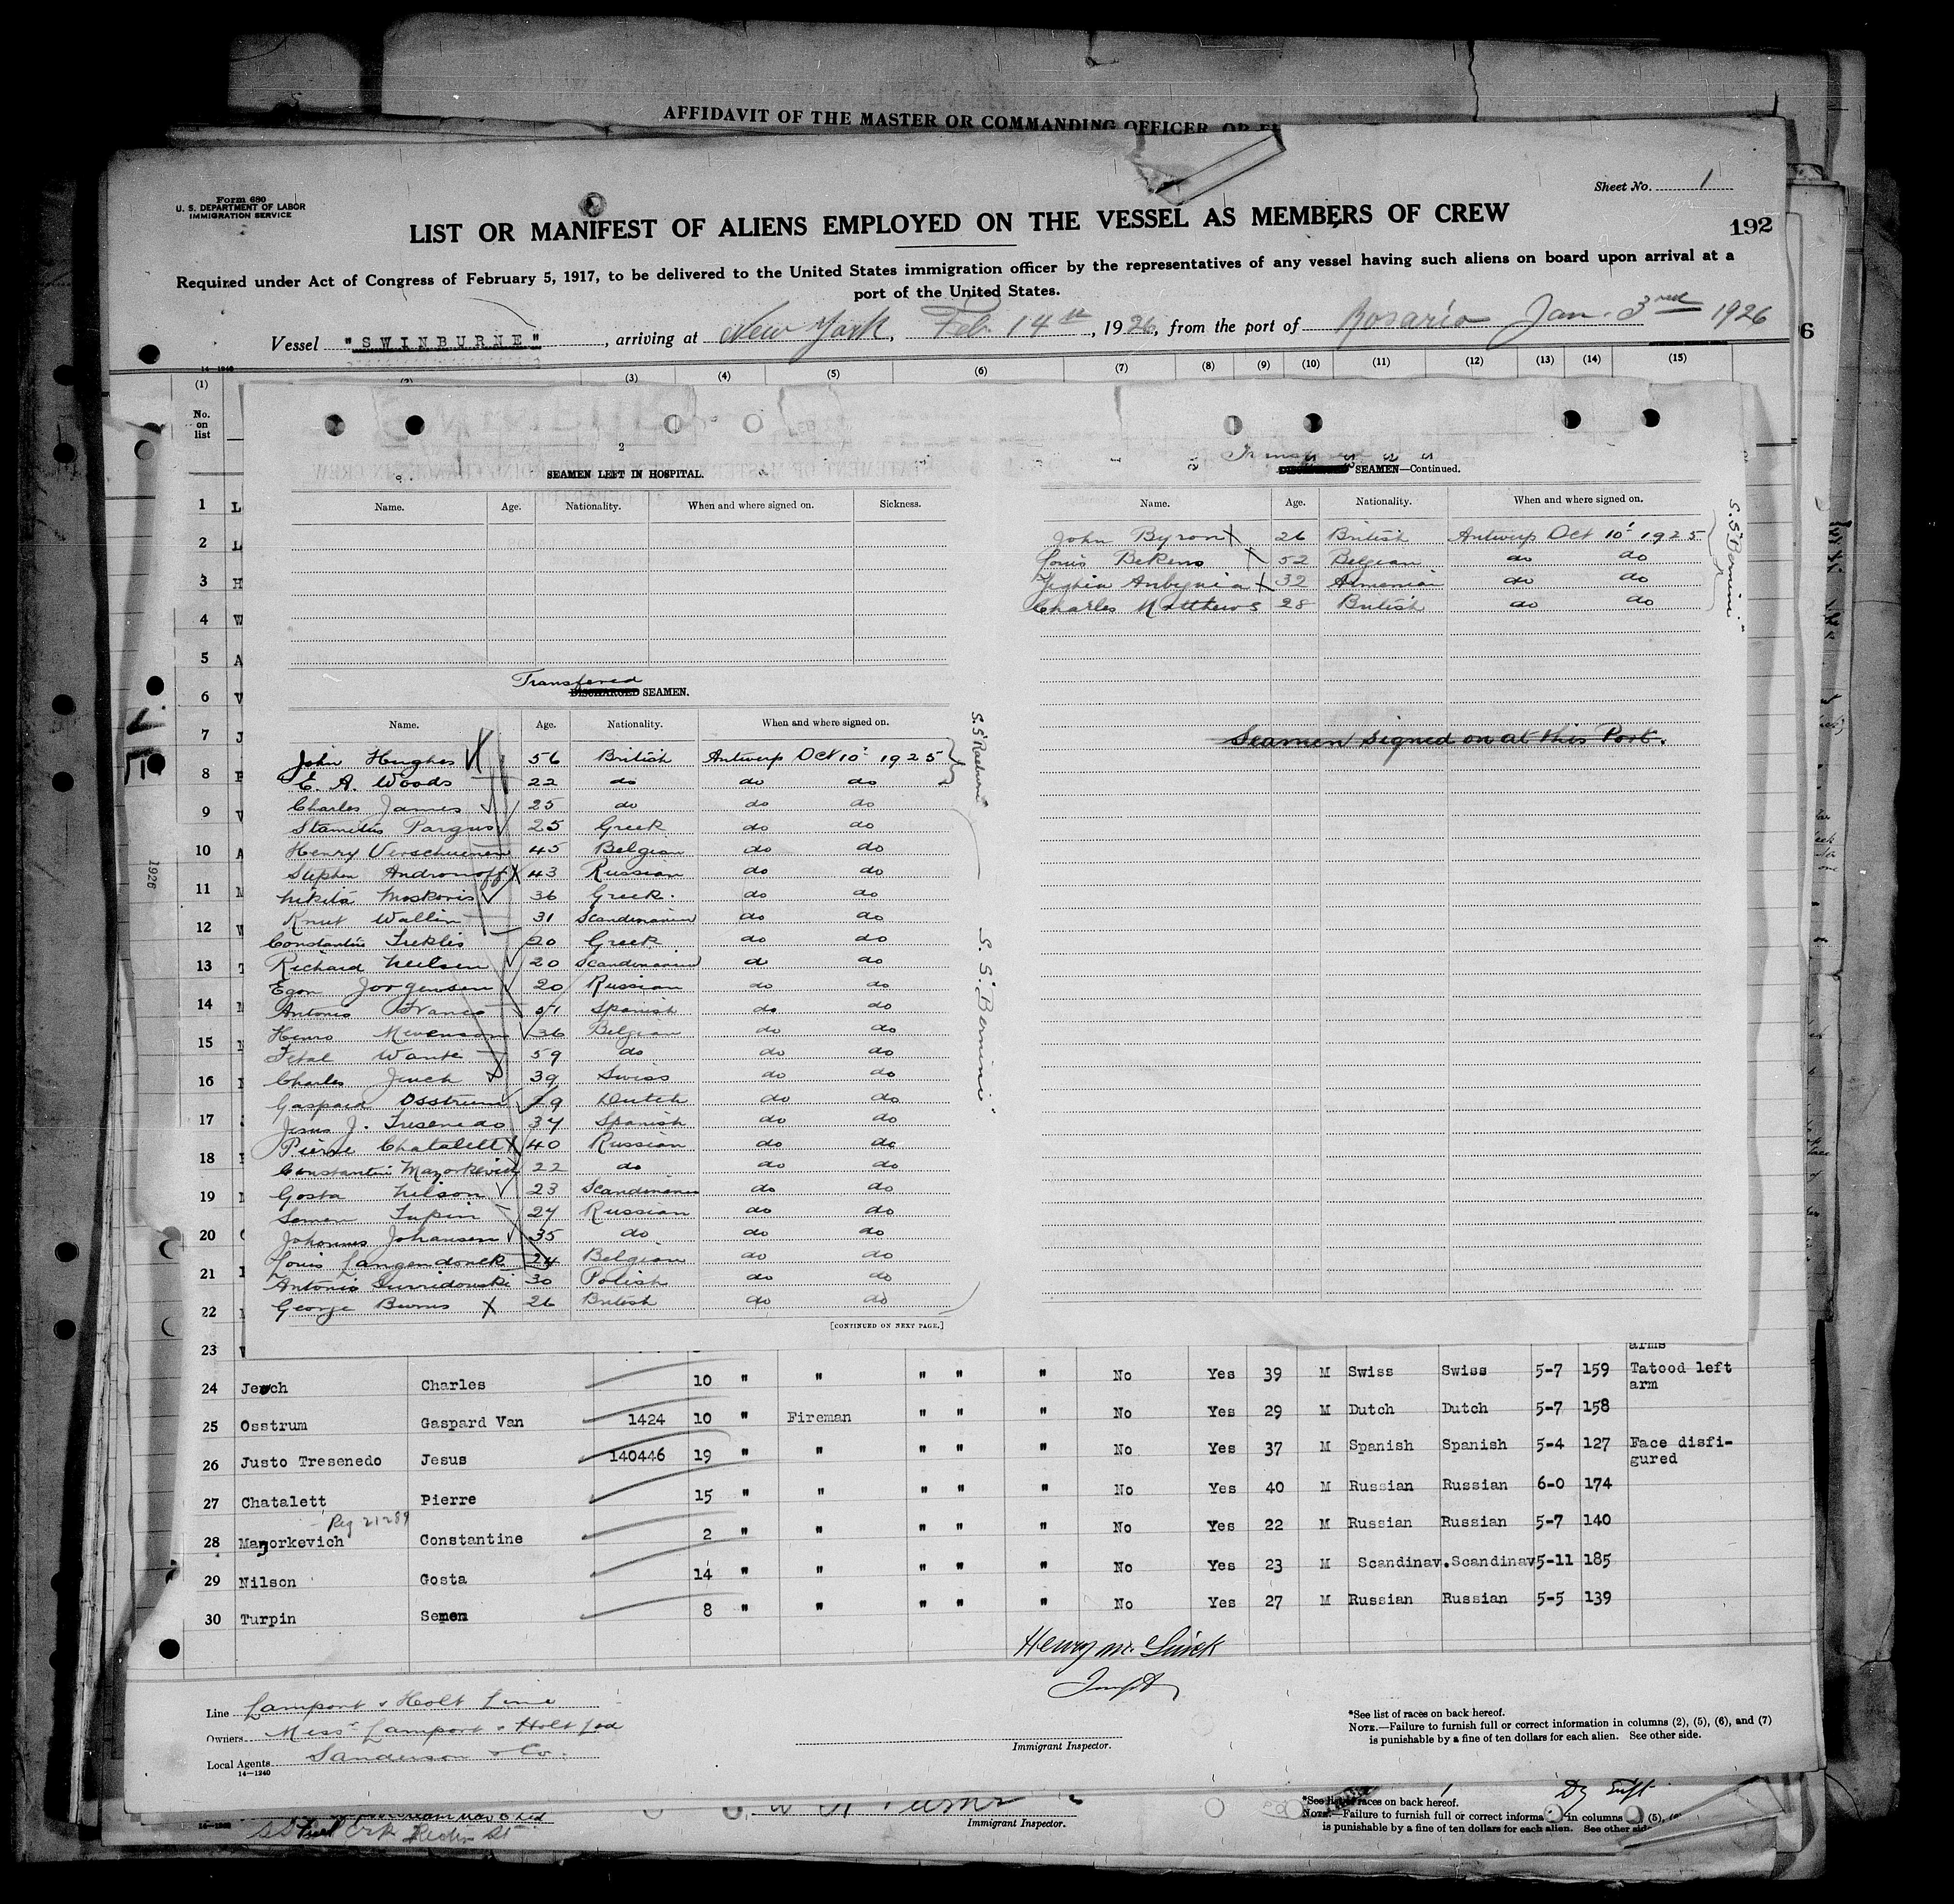 AFFIDAVIT OF THE MASTER OR COMMANDING OFFICER, OR
Form 680
U. S. DEPARTMENT OF LABOR
IMMIGRATION SERVICE
Sheet No. 1
LIST OR MANIFEST OF ALIENS EMPLOYED ON THE VESSEL AS MEMBERS OF CREW
192
Required under Act of Congress of February 5, 1917, to be delivered to the United States immigration officer by the representatives of any vessel having such aliens on board upon arrival at a
port of the United States.
Vessel "SWINBURNE", arriving at New York, Feb. 14th, 1926, from the port of Rosario Jan. 3rd 1926
6
(1) (2) (3) (4) (5) (6) (7) (8) (9) (10) (11) (12) (13) (14) (15)
No. on list
2
SEAMEN LEFT IN HOSPITAL.
Name. Age. Nationality. When and where signed on. Sickness.
Transfered
DISCHARGED SEAMEN.
Name. Age. Nationality. When and where signed on.
John Hughes 56 British Antwerp Oct 10' 1925
E. A. Woods 22 do do do
S.S "Raeburn"
Charles James 25 do do do
Stamitis Pargus 25 Greek do do
Henry Verschueren 45 Belgian do do
Stephen Andronoff 43 Russian do do
Nikita Moskovis 36 Greek. do do
Knut Wallin 31 Scandinavian do do
Constantin Treklis 20 Greek do do
Richard Neilsen 20 Scandinavian do do
Egon Jorgensen 20 Russian do do
Antonio Franco 51 Spanish do do
Henro Mevenson 36 Belgian do do
Wante 59 do do do
Charles Jench 39 Swiss do do
Gaspard Osstrum 29 Dutch do do
Jesus J. Tresenedo 37 Spanish do do
Pierre Chatalett 40 Russian do do
Constantin Mazorkevich 22 do do do
Gosta Nilson 23 Scandinavian do do
Semen Turpin 27 Russian do do
Johannes Johansen 35 do do do
Louis Langendonck 24 Belgian do do
Antonio 30 Polish do do
George Burns 26 British do do
S. S. "Bernini"
[CONTINUED ON NEXT PAGE.]
Transfered
DISCHARGED SEAMEN—Continued.
Name. Age. Nationality. When and where signed on.
John Byron 26 British Antwerp Oct 10' 1925
Louis Bekens 52 Belgian do do
32 Armenian do do
Charles Matthews 28 British do do
S.S "Bernini"
Seamen signed on at this Port.
1 L
2 L
3 H
4 W
5 A
6 V
7 J
8
9 V
10 A
11
12
13
14
15
16
17
18
19
20
21
22
23
arms
24 Jench Charles 10 " " " " " No Yes 39 M Swiss Swiss 5-7 159 Tatood left arm
25 Osstrum Gaspard Van 1424 10 " Fireman " " " No Yes 29 M Dutch Dutch 5-7 158
26 Justo Tresenedo Jesus 140446 19 " " " " " No Yes 37 M Spanish Spanish 5-4 127 Face disfi-gured
27 Chatalett Pierre 15 " " " " " No Yes 40 M Russian Russian 6-0 174
Reg 21289
28 Mazorkevich Constantine 2 " " " " " No Yes 22 M Russian Russian 5-7 140
29 Nilson Gosta 14 " " " " " No Yes 23 M Scandinav. Scandinav 5-11 185
30 Turpin Semen 8 " " " " " No Yes 27 M Russian Russian 5-5 139
1926
Line Lamport & Holt Line
Owners Messrs Lamport & Holt Ltd
Local Agents Sanderson & Co.
14—1240
Immigrant Inspector.
*See list of races on back hereof.
NOTE.—Failure to furnish full or correct information in columns (2), (5), (6), and (7)
is punishable by a fine of ten dollars for each alien. See other side.
Immigrant Inspector.
*See list of races on back hereof.
NOTE.—Failure to furnish full or correct informa in columns (5),
is punishable by a fine of ten dollars for each alien. See other side